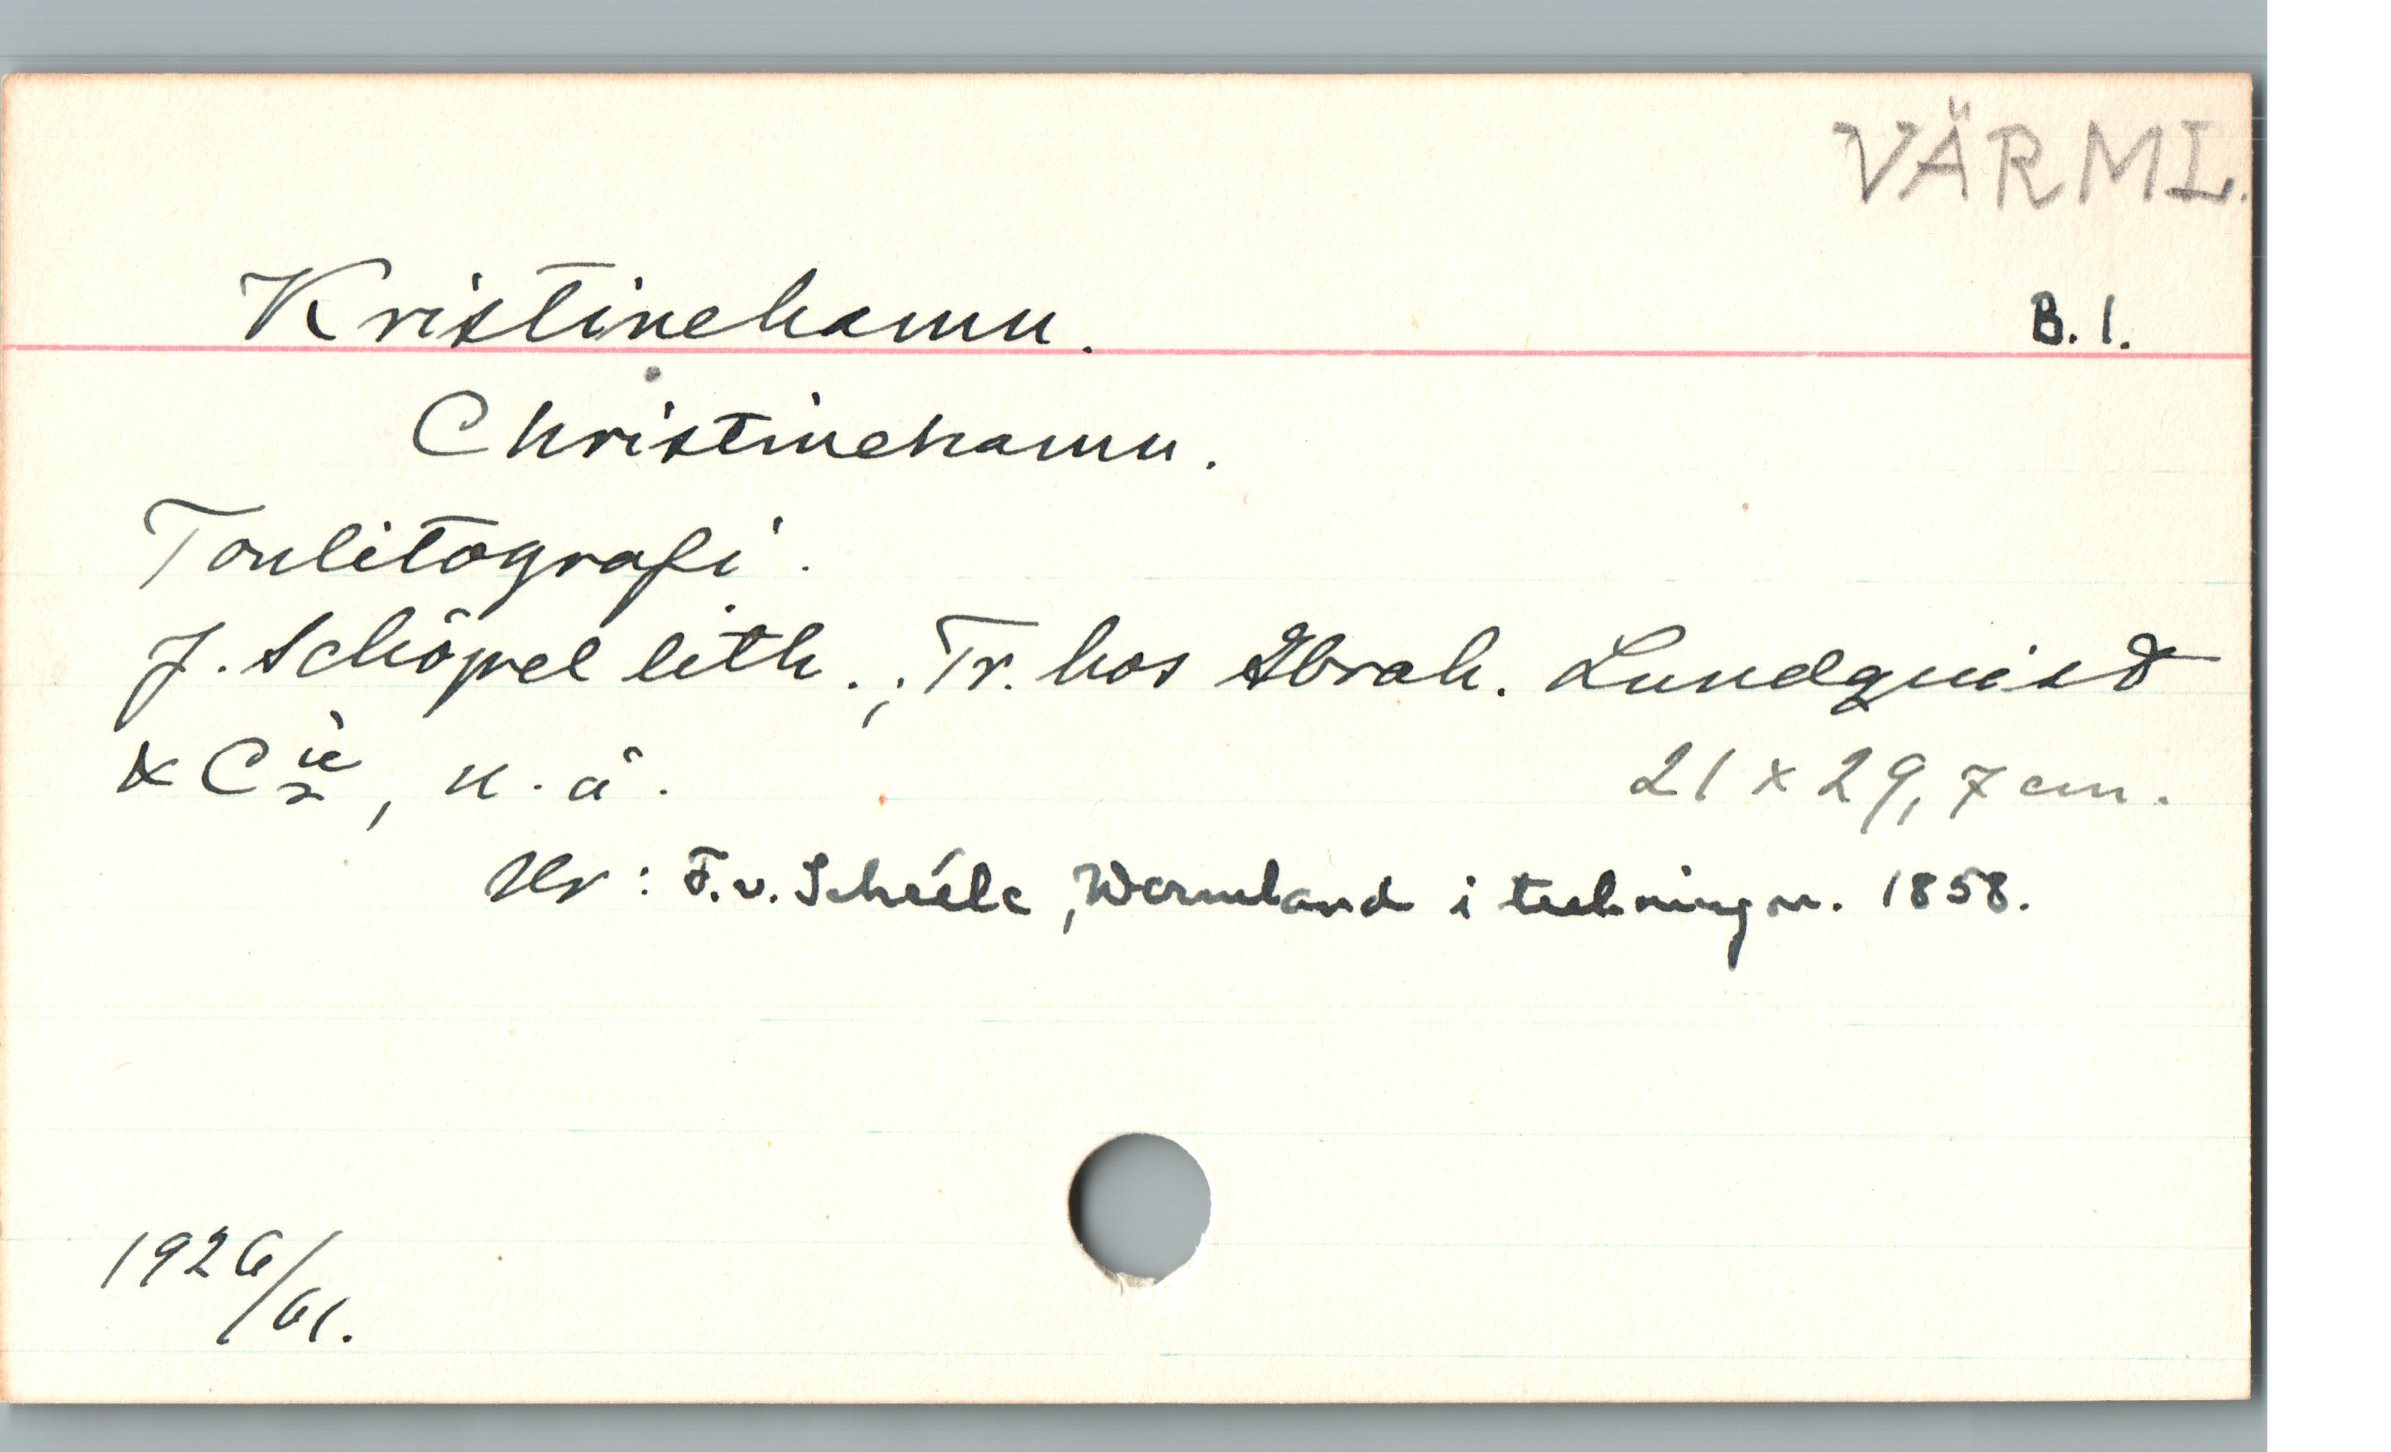 VÄRML.
Kristinehamn. B. 1.
Christinehamn.
Tonlitografi.
J. Schöpel lith.; Tr. hos Abrah. Lundquist
& C ie, u. å. 21 x 29,7 cm.
Ur: F. v. Scheéle, Wermland i teckningar. 1858.
1926/61.